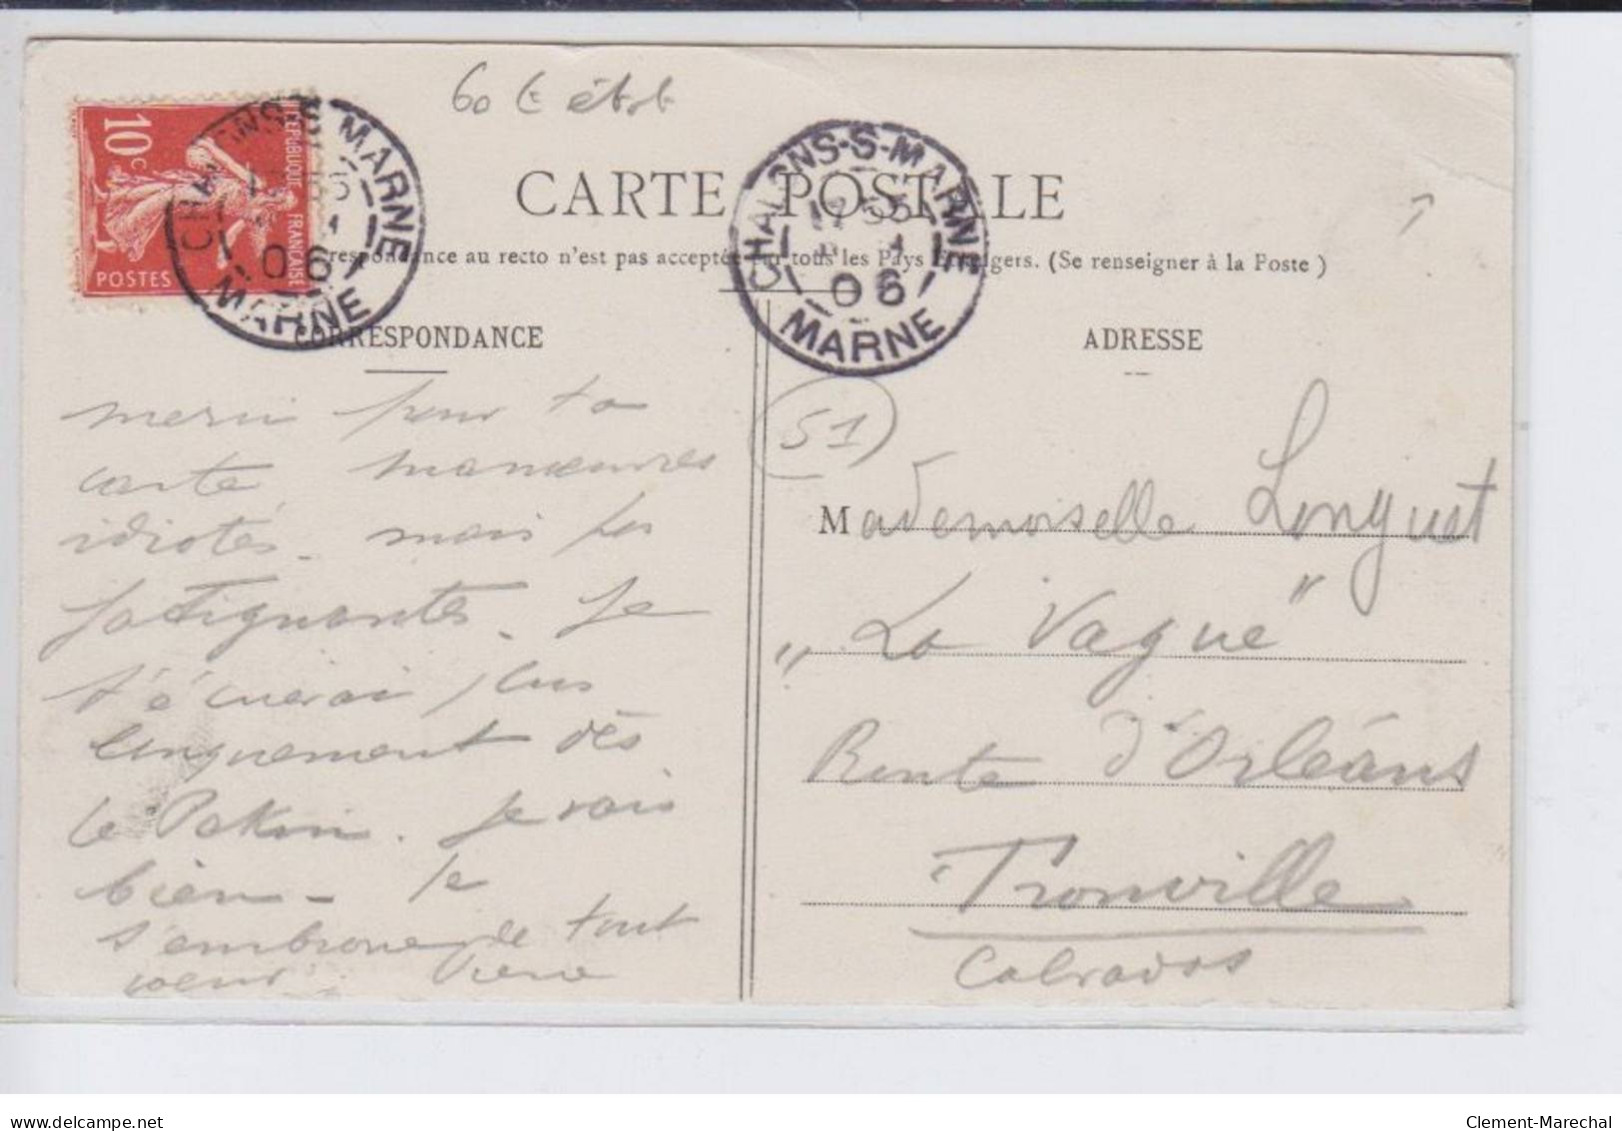 60 t état
10c
REPUBLIQUE FRANÇAISE
POSTES
CHALONS-S-MARNE
06
MARNE
CHALONS-S-MARNE
17 55
06
MARNE
CARTE POSTALE
respondance au recto n'est pas acceptée par tous les Pays Etrangers. (Se renseigner à la Poste)
CORRESPONDANCE
merci pour ta
carte manœuvres
idiotes. mais pas
fatigantes. Je
t'écrirai plus
longuement dès
le Je vais
bien - Je
t'embrasse de tout
cœur Pierre
51
ADRESSE
Mademoiselle Longuet
"La Vague"
Route d'Orléans
Trouville
Calvados
Clement-Marechal